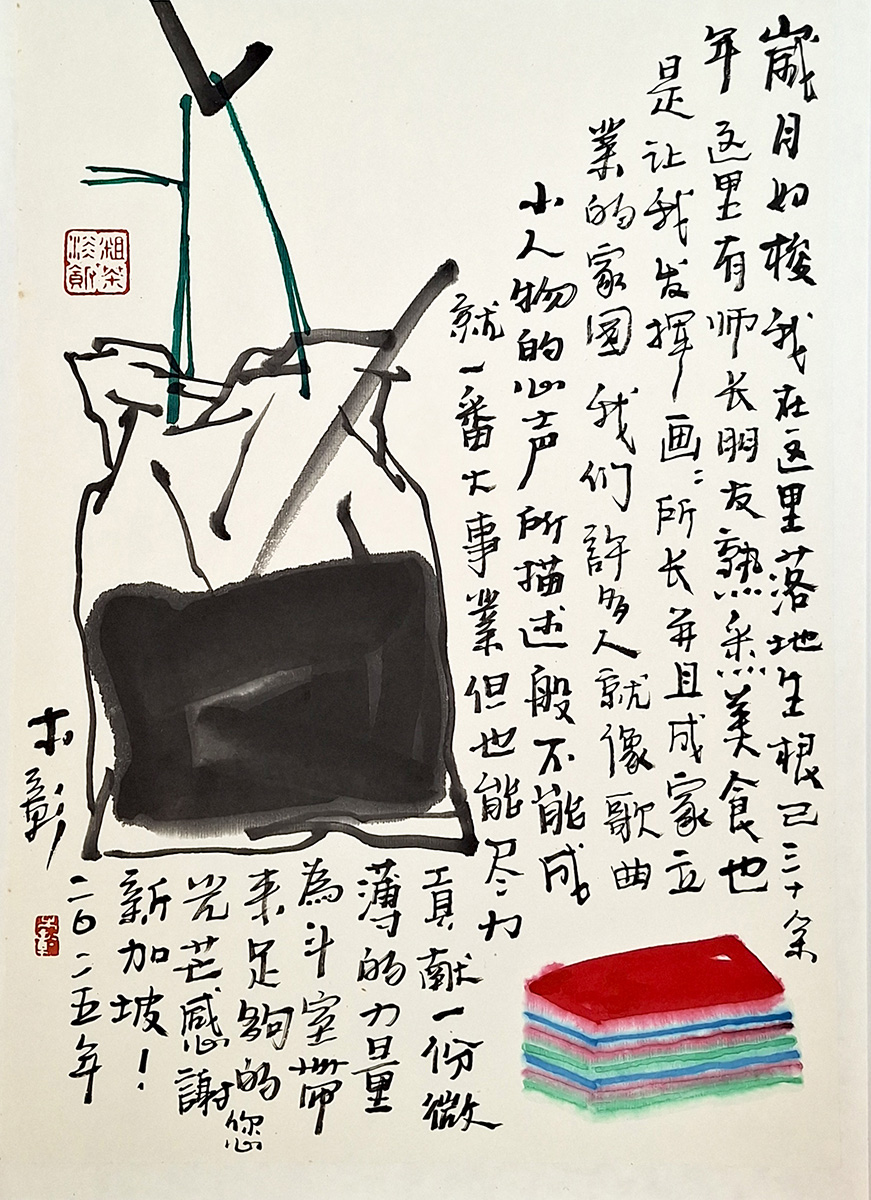 歲月如梭我在这里落地生根已三十余
年这里有师长朋友熟悉美食也
是让我发挥画〻所长并且成家立
業的家園我们許多人就像歌曲
小人物的心声所描述般不能成
就一番大事業但也能尽〻力
貢献一份微
薄的力量
為斗室帶
来足夠的
光芒感謝您
新加坡！
二〇二五年
粗茶
淡飯